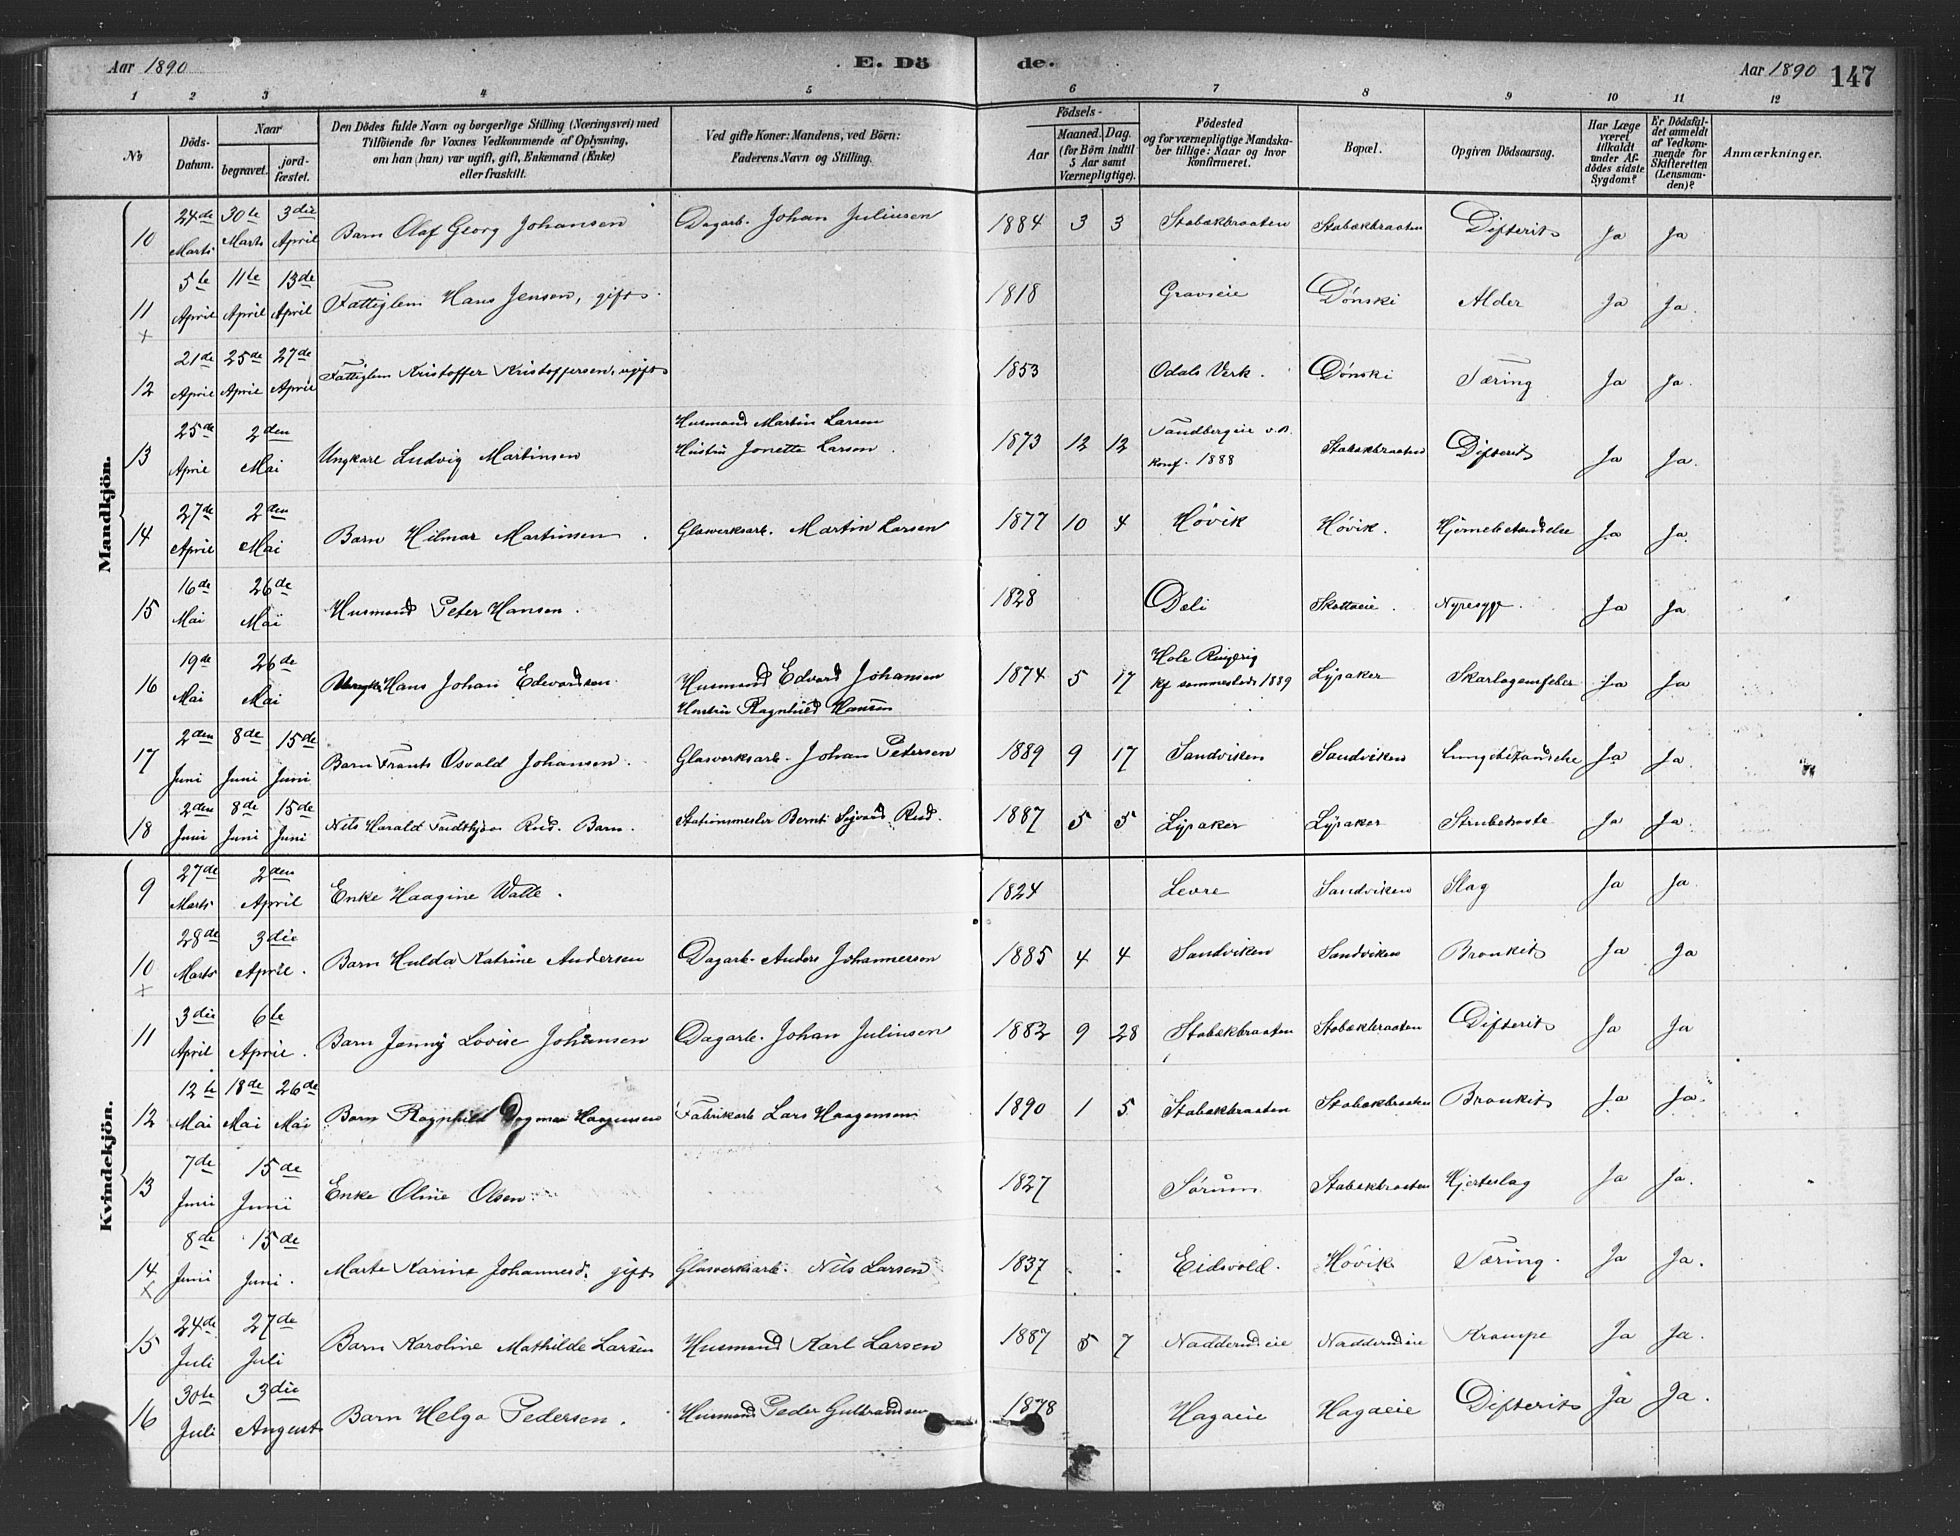 Aar 1890
E. Dö
de.
Aar 1890
147
1 2 3 4 5 6 7 8 9 10 11 12
No
Döds-Datum.
Naar
begravet.
jord-fæstet.
Den Dödes fulde Navn og borgerlige Stilling (Næringsvei) med
Tilföiende for Voxnes Vedkommende af Oplysning,
om han (hun) var ugift, gift, Enkemand (Enke)
eller fraskilt.
Ved gifte Koner: Mandens, ved Börn:
Faderens Navn og Stilling.
Födsels-
Aar
Maaned. Dag.
(for Börn indtil
5 Aar samt
Værnepligtige).
Födested
og for værnepligtige Mandska-
ber tillige: Naar og hvor
konfirmeret.
Bopæl.
Opgiven Dödsaarsag.
Har Læge
været
tilkaldt
under Af-
dödes sidste
Sygdom?
Er Dödsfal-
det anmeldt
af Vedkom-
mende for
Skifteretten
(Lensman-
den)?
Anmærkninger.
Mandkjön.
10 24de Marts 30te Marts 3die April Barn Olaf Georg Johansen Dagarb. Johan Juliusen 1884 3 3 Stabækbraaten Stabækbraaten Difterit Ja Ja
11 x 5te April 11te April 13de April Fattiglem Hans Jensen, gift. 1818 Gravseie Dönski Alder Ja Ja.
12 21de April 25de April 27de April Fattiglem Kristoffer Kristoffersen, ugift 1853 Odals Verk. Dönski Tæring Ja Ja.
13 25de April 2den Mai Ungkarl Ludvig Martinsen Husmand Martin Larsen
Hustru Jonette Larsen. 1873 12 12 Tandbergeie v.B.
konf. 1888 Stabækbraaten Difterit Ja Ja.
14 27de April 2den Mai Barn Hilmar Martinsen. Glasverksarb. Martin Larsen 1877 10 4 Hövik Hövik. Hjernebetændelse Ja Ja.
15 16de Mai 26de Mai Husmand Peter Hansen. 1828 Dæli Skottaeie. Nyresyge. Ja Ja
16 19de Mai 26de Mai Hans Johan Edvardsen Husmand Edvard Johansen
Hustru Ragnhild Hansen 1874 5 17 Hole Ringerig
kf sammesteds 1889 Lysaker Skarlagensfeber Ja Ja
17 2den Juni 8de Juni 15de Juni Barn Frants Osvald Johansen. Glasverksarb. Johan Petersen 1889 9 17 Sandviken Sandviken Lungebetændelse Ja Ja.
18 2den Juni 8de Juni 15de Juni Nils Harald Rud. Barn. Stationsmester Bernt Sigvard Rud. 1887 5 5 Lysaker Lysaker Strubehoste Ja Ja.
Kvindekjön.
9 27de Marts 2den April Enke Haagine Walle. 1824 Levre Sandviken Slag Ja Ja.
10 x 28de Marts 3die April. Barn Hulda Katrine Andersen Dagarb. Anders Johannesson 1885 4 4 Sandviken Sandviken Bronkit Ja Ja
11 3die April 6te April. Barn Jenny Lovise Johansen Dagarb. Johan Juliusen 1882 9 28 Stabækbraaten Stabækbraaten Difterit Ja Ja
12 12te Mai 18de Mai 26de Mai Barn Ragnhild Dagmar Haagensen Fabrikarb Lars Haagensen 1890 1 5 Stabækbraaten Stabækbraaten Bronkit Ja Ja.
13 7de Juni 15de Juni Enke Oline Olsen. 1827 Sörum Stabækbraaten Hjerteslag Ja Ja.
14 x 8de Juni 15de Juni. Marte Karine Johannesd. gift Glasverksarb. Nils Larsen 1837 Eidsvold. Hövik Tæring. Ja Ja.
15 24de Juli 27de Juli Barn Karoline Mathilde Larsen Husmand Karl Larsen 1887 5 7 Nadderudeie Nadderudeie Krampe Ja Ja.
16 30te Juli 3die August Barn Helga Pedersen. Husmand Peder Gulbrandsen 1878 Hagaeie Hagaeie Difterit Ja Ja.